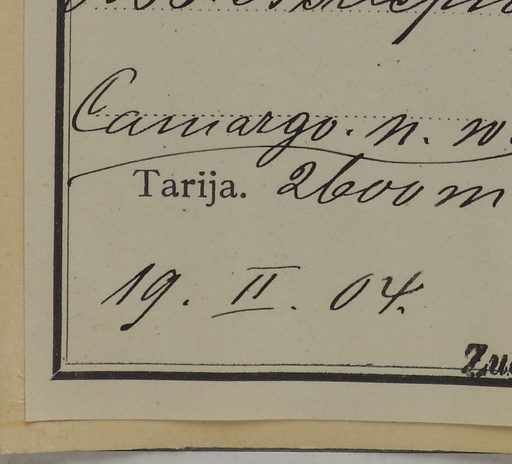 Camargo. n. w.
Tarija. 2600 m
19. II. 04.